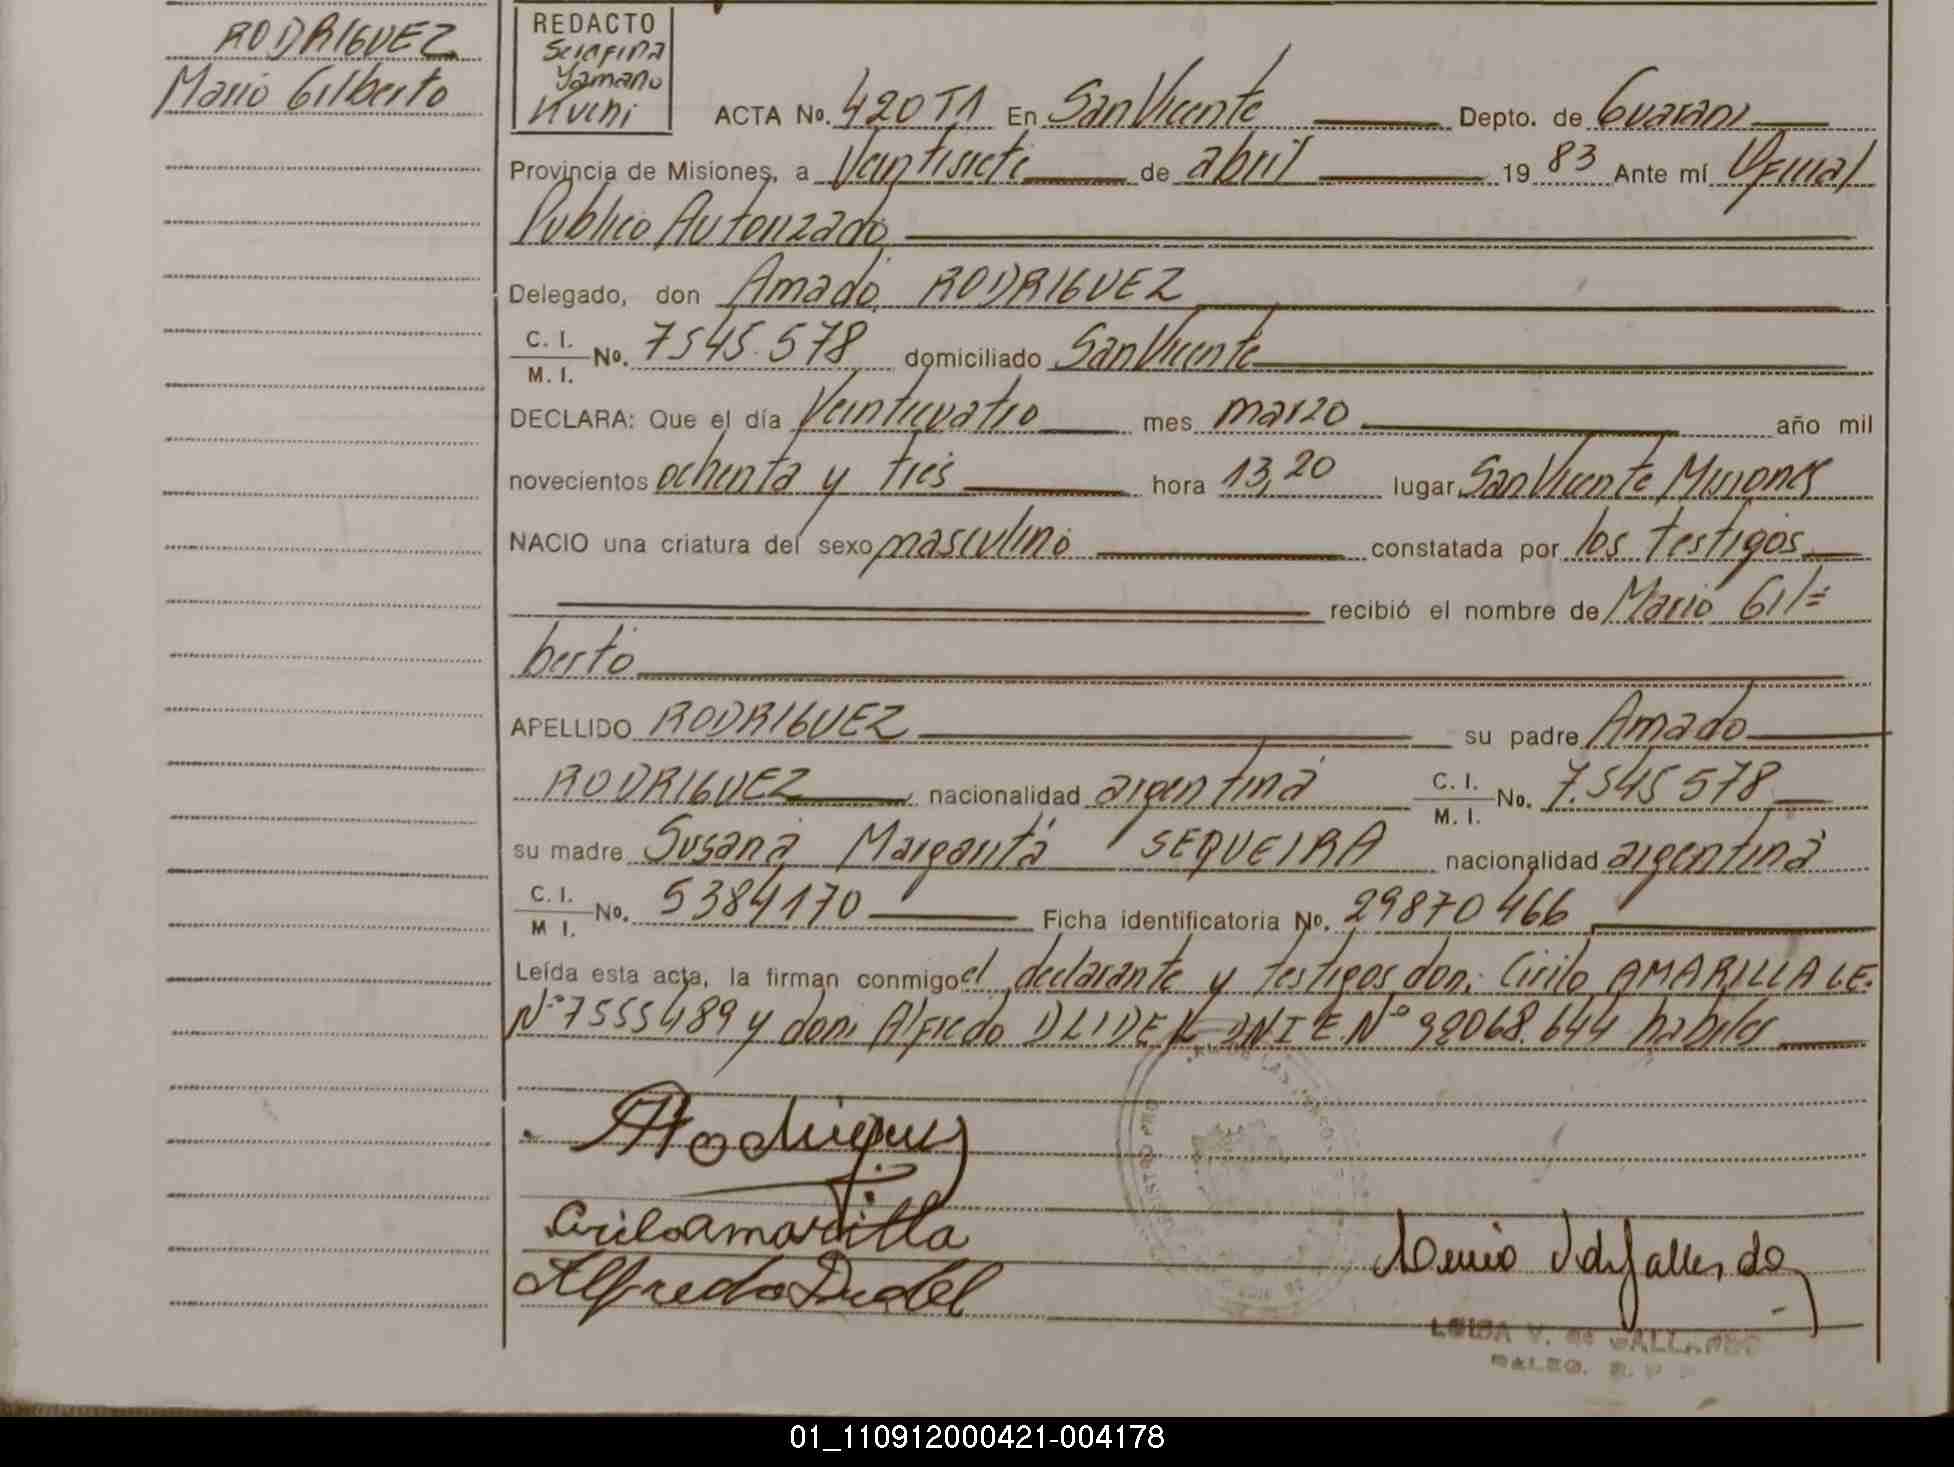 RODRIGUEZ
Mario Gilberto
REDACTO
Serafina
Yamano
Kuchi
ACTA No. 420 T1 En San Vicente Depto. de Guarani
Provincia de Misiones, a Veintisiete de abril 19 83 Ante mí Oficial
Publico Autorizado
Delegado, don Amado RODRIGUEZ
C. I.
M. I. No. 7545.578 domiciliado San Vicente
DECLARA: Que el día Veinticuatro mes marzo año mil
novecientos ochenta y tres hora 13,20 lugar San Vicente Misiones
NACIO una criatura del sexo masculino constatada por los testigos
recibió el nombre de Mario Gil=
berto
APELLIDO RODRIGUEZ su padre Amado
RODRIGUEZ nacionalidad argentina C. I.
M. I. No. 7.545578
su madre Susana Margarita SEQUEIRA nacionalidad argentina
C. I.
M I. No. 5384170 Ficha identificatoria No. 29870466
Leída esta acta, la firman conmigo el declarante y testigos don: Cirilo AMARILLA LE.
Nº 7555489 y don: Alfredo DNIE Nº 92068.644 habiles
ARodriguez
Cirilo amarilla
Alfredo
LUISA V. de GALLARDO
01_110912000421-004178